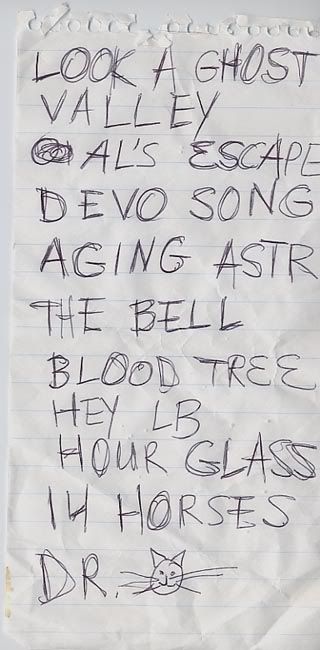 LOOK A GHOST
VALLEY
AL'S ESCAPE
DEVO SONG
AGING ASTR
THE BELL
BLOOD TREE
HEY LB
HOUR GLASS
14 HORSES
DR.